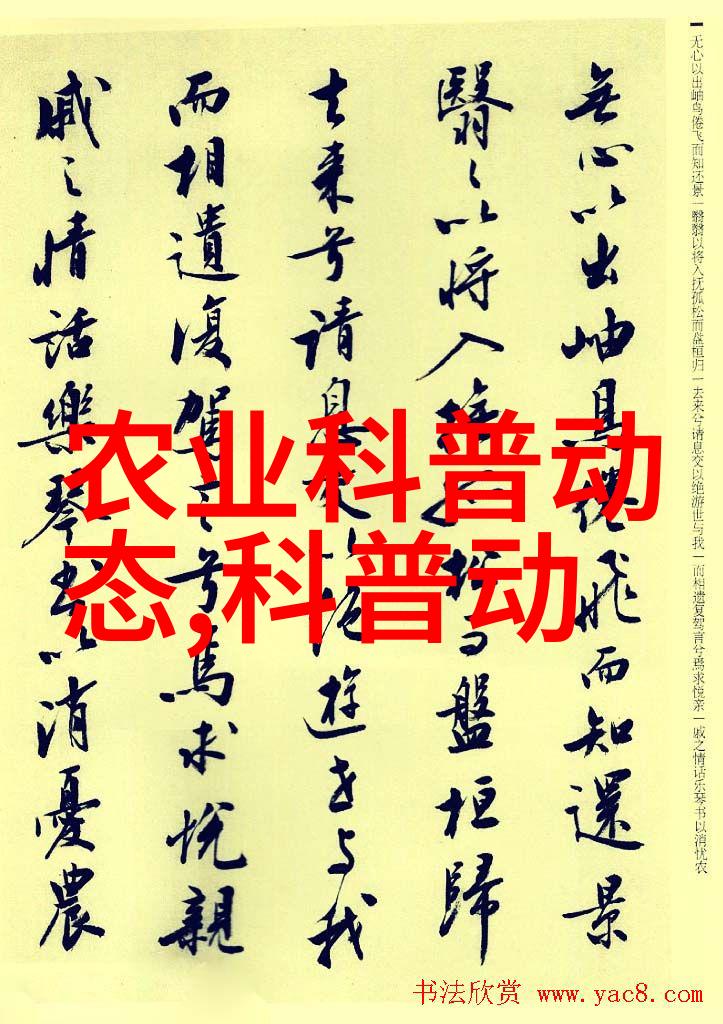 无心以出岫鸟倦飞而知还景|翳翳以将入抚孤松而盘桓归|去来兮请息交以绝游世与我|而相遗复驾言兮焉求悦亲|戚之情话乐琴书以消忧农
無心以出岫鳥倦飛而知還景
翳〻以将入撫孤松而盤桓歸
去来兮请息交以绝遊世与我
而相遺復駕言兮焉求悦親
戚〻情話樂琴書以消憂農
农业科普动
态,科普动
书法欣赏 @ www.yac8.com